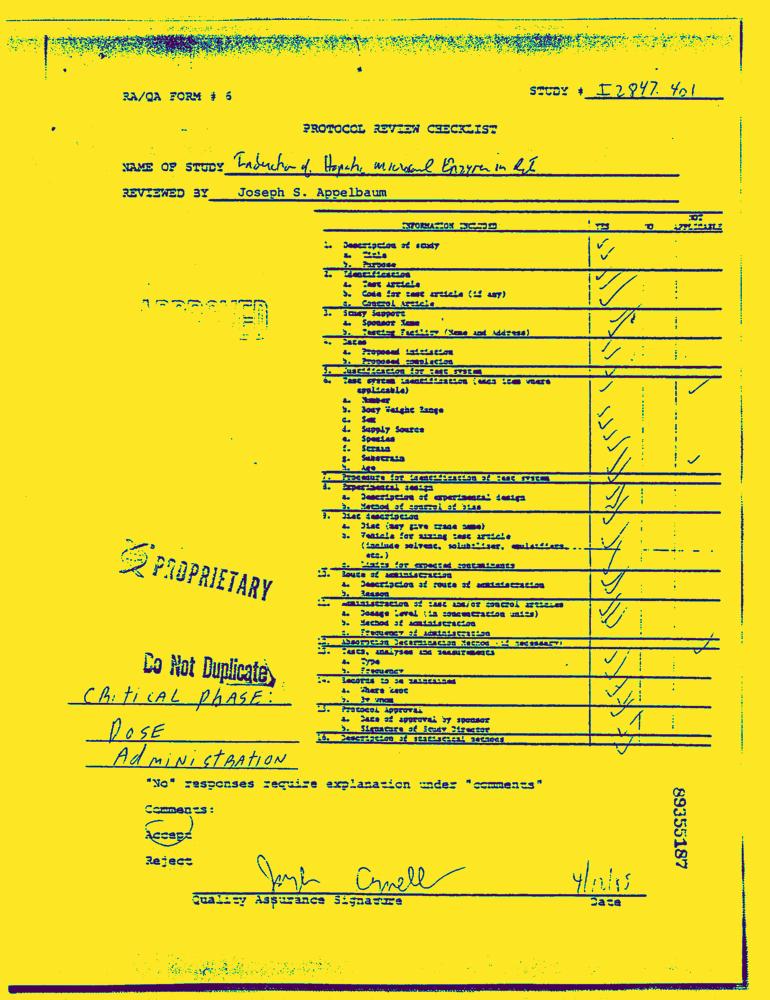 RA/QA FORM # 6
STUDY # I 2847. 401
PROTOCOL REVIEW CHECKLIST
NAME OF STUDY Induction of Hepatic microsomal Enzymes in
REVIEWED BY Joseph S. Appelbaum
INFORMATION INCLUDED YES NO NOT APPLICABLE
1. Description of study
a. Title
b. Purpose
2. Identification
a. Test Article
b. Code for test article (if any)
c. Control Article
3. Study Support
a. Sponsor Name
b. Testing Facility (Name and Address)
4. Dates
a. Proposed initiation
b. Proposed completion
5. Justification for test system
6. Test system identification (each item where applicable)
a. Number
b. Body Weight Range
c. Sex
d. Supply Source
e. Species
f. Strain
g. Substrain
h. Age
7. Procedure for identification of test system
8. Experimental design
a. Description of experimental design
b. Method of control of bias
9. Diet description
a. Diet (may give trade name)
b. Vehicle for mixing test article
(include solvent, solubilizer, emulsifiers,
etc.)
c. Limits for expected contaminants
10. Route of administration
a. Description of route of administration
b. Reason
11. Administration of test and/or control articles
a. Dosage level (in concentration units)
b. Method of administration
c. Frequency of Administration
12. Absorption Determination Method (if necessary)
13. Tests, analyses and measurements
a. Type
b. Frequency
14. Records to be maintained
a. Where kept
b. By whom
15. Protocol Approval
a. Date of approval by sponsor
b. Signature of Study Director
16. Description of statistical methods
APPROVED
PROPRIETARY
Do Not Duplicate
CRITICAL PHASE:
DOSE
ADMINISTRATION
"No" responses require explanation under "comments"
Comments:
Accept
Reject
4/12/85
Quality Assurance Signature Date
89355187